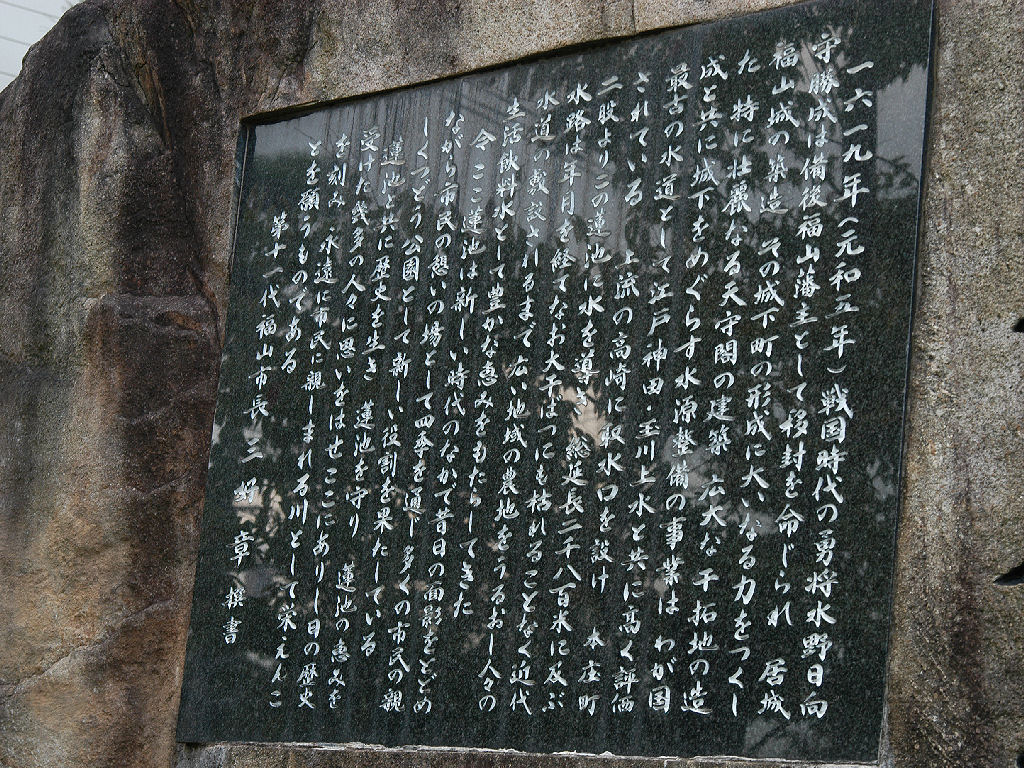 一六一九年(元和五年)戦国時代の勇将水野日向
守勝成は備後福山藩主として移封を命じられ 居城
福山城の築造 その城下町の形成に大いなる力をつくし
た 特に壮麗なる天守閣の建築 広大な干拓地の造
成と共に城下をめぐらす水源整備の事業は わが国
最古の水道として江戸神田・玉川上水と共に高く評価
されている 上流の高崎に取水口を設け 本庄町
二股より二の蓮池に水を導き 総延長二千八百米に及ぶ
水路は年月を経てなお大干ばつにも枯れることなく近代
水道の敷設されるまで広い地域の農地をうるおし人々の
生活飲料水として豊かな恵みをもたらしてきた
今ここ蓮池は新しい時代のなかで昔日の面影をとどめ
ながら市民の憩いの場として四季を通じ多くの市民の親
しくつどう公園として新しい役割を果たしている
蓮池と共に歴史を生き 蓮池を守り 蓮池の恵みを
受けた幾多の人々に思いをはせここにありし日の歴史
を刻み 永遠に市民に親しまれる川として栄えんこ
とを願うものである
第十一代福山市長 三好 章 撰書